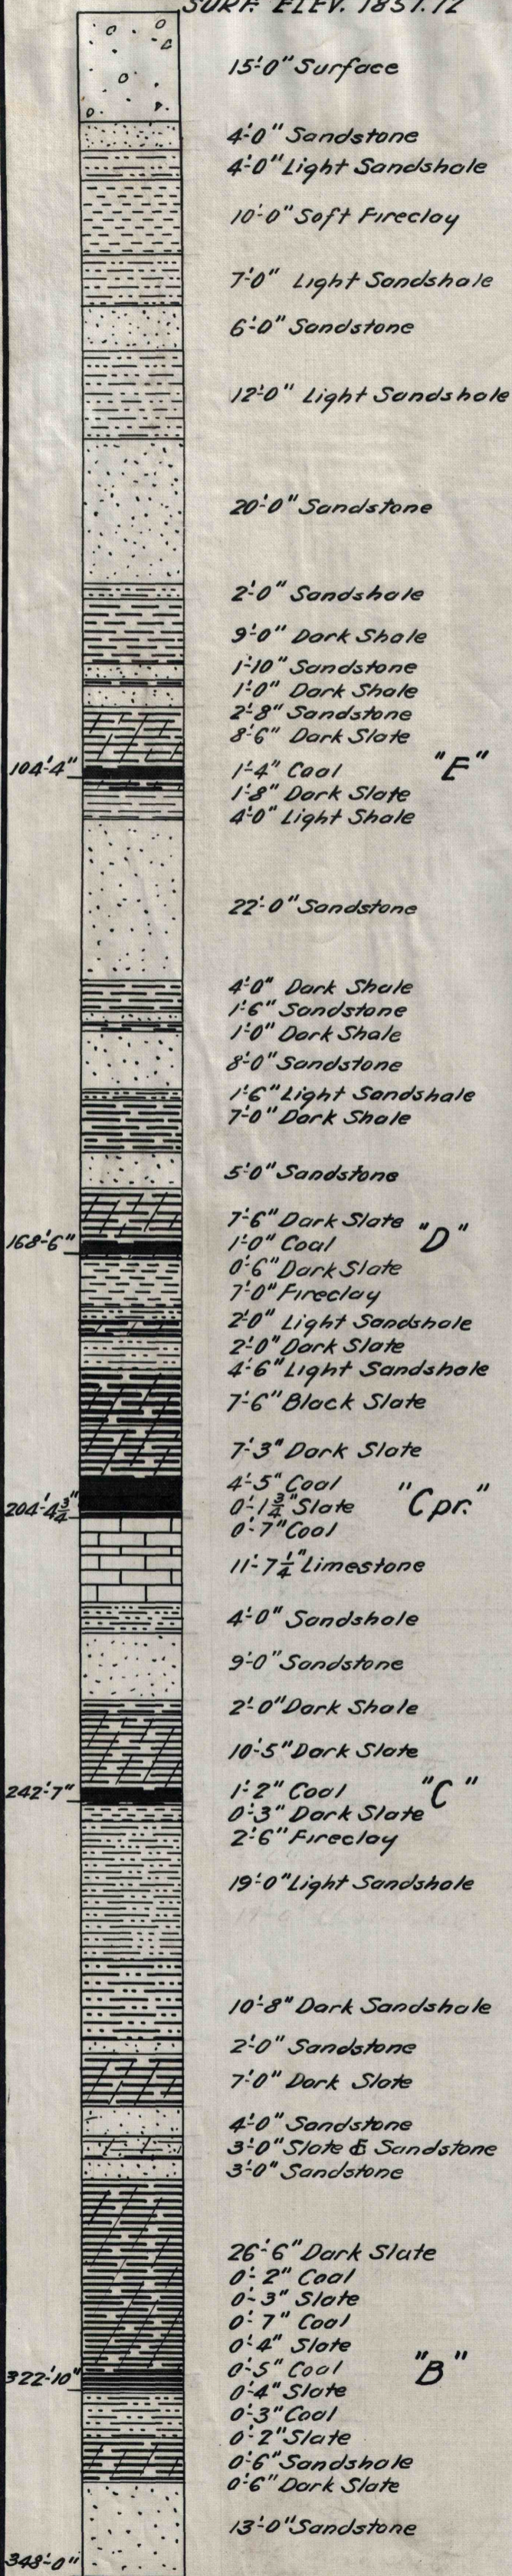 SURF. ELEV. 1837.72
15'-0" Surface
4'-0" Sandstone
4'-0" Light Sandshale
10'-0" Soft Fireclay
7'-0" Light Sandshale
6'-0" Sandstone
12'-0" Light Sandshale
20'-0" Sandstone
2'-0" Sandshale
9'-0" Dark Shale
1'-10" Sandstone
1'-0" Dark Shale
2'-8" Sandstone
8'-6" Dark Slate
104'-4" 1'-4" Coal "E"
1'-8" Dark Slate
4'-0" Light Shale
22'-0" Sandstone
4'-0" Dark Shale
1'-6" Sandstone
1'-0" Dark Shale
8'-0" Sandstone
1'-6" Light Sandshale
7'-0" Dark Shale
5'-0" Sandstone
7'-6" Dark Slate
168'-6" 1'-0" Coal "D"
0'-6" Dark Slate
7'-0" Fireclay
2'-0" Light Sandshale
2'-0" Dark Slate
4'-6" Light Sandshale
7'-6" Black Slate
7'-3" Dark Slate
4'-5" Coal
204'-4 3/4" 0'-1 3/4" Slate "Cpr."
0'-7" Coal
11'-7 1/4" Limestone
4'-0" Sandshale
9'-0" Sandstone
2'-0" Dark Shale
10'-5" Dark Slate
242'-7" 1'-2" Coal "C"
0'-3" Dark Slate
2'-6" Fireclay
19'-0" Light Sandshale
10'-8" Dark Sandshale
2'-0" Sandstone
7'-0" Dark Slate
4'-0" Sandstone
3'-0" Slate & Sandstone
3'-0" Sandstone
26'-6" Dark Slate
0'-2" Coal
0'-3" Slate
0'-7" Coal
0'-4" Slate
322'-10" 0'-5" Coal "B"
0'-4" Slate
0'-3" Coal
0'-2" Slate
0'-6" Sandshale
0'-6" Dark Slate
13'-0" Sandstone
348'-0"